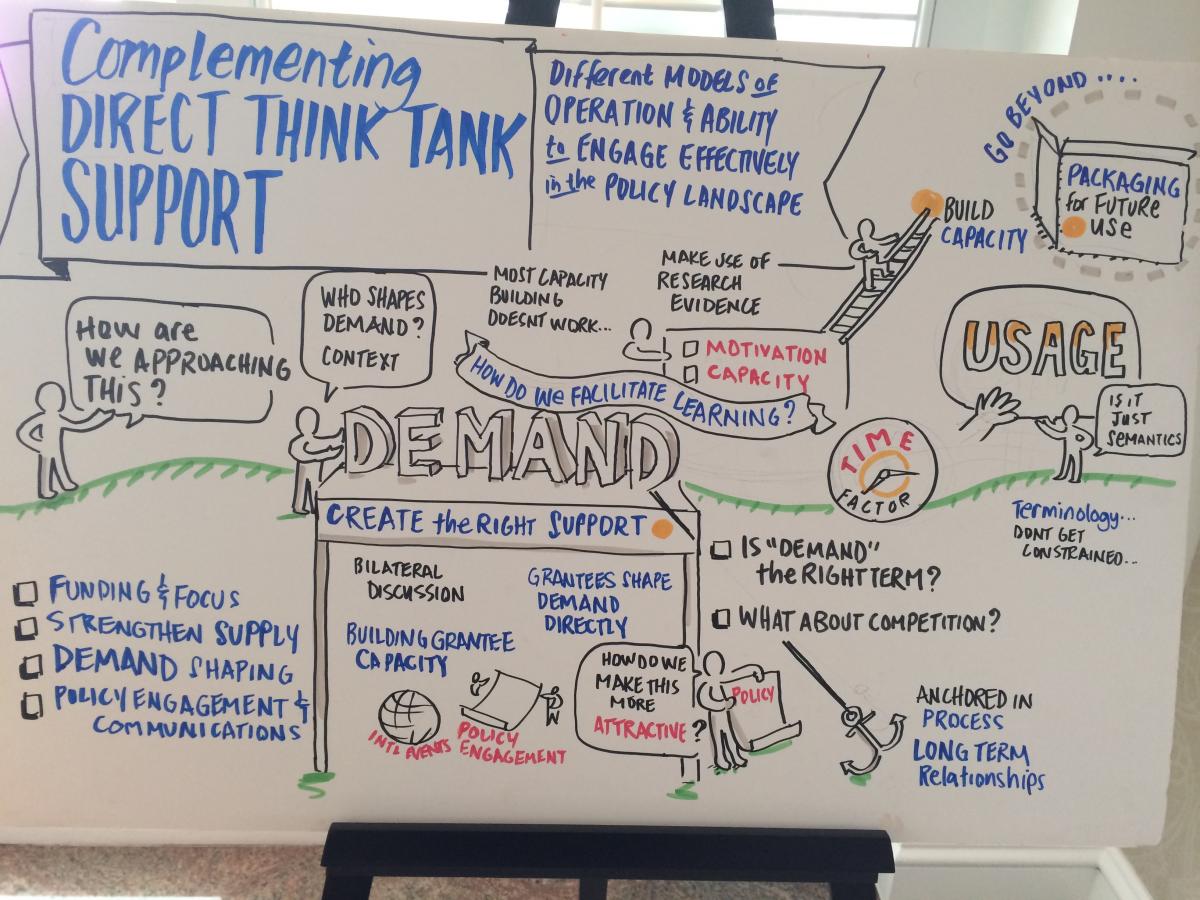 Complementing
DIRECT THINK TANK
SUPPORT
Different MODELS of
OPERATION & ABILITY
to ENGAGE EFFECTIVELY
in the POLICY LANDSCAPE
GO BEYOND ....
PACKAGING
for FUTURE
USE
BUILD
CAPACITY
How are
WE APPROACHING
THIS?
WHO SHAPES
DEMAND?
CONTEXT
MOST CAPACITY
BUILDING
DOESNT WORK...
MAKE USE OF
RESEARCH
EVIDENCE
MOTIVATION
CAPACITY
HOW DO WE FACILITATE LEARNING?
USAGE
IS IT
JUST
SEMANTICS
DEMAND
TIME
FACTOR
Terminology...
DONT GET
CONSTRAINED...
CREATE the RIGHT SUPPORT
BILATERAL
DISCUSSION
GRANTEES SHAPE
DEMAND
DIRECTLY
BUILDING GRANTEE
CAPACITY
INTL EVENTS
POLICY
ENGAGEMENT
HOW DO WE
MAKE THIS
MORE
ATTRACTIVE?
POLICY
IS "DEMAND"
the RIGHT TERM?
WHAT ABOUT COMPETITION?
FUNDING & FOCUS
STRENGTHEN SUPPLY
DEMAND SHAPING
POLICY ENGAGEMENT &
COMMUNICATIONS
ANCHORED IN
PROCESS
LONG TERM
Relationships